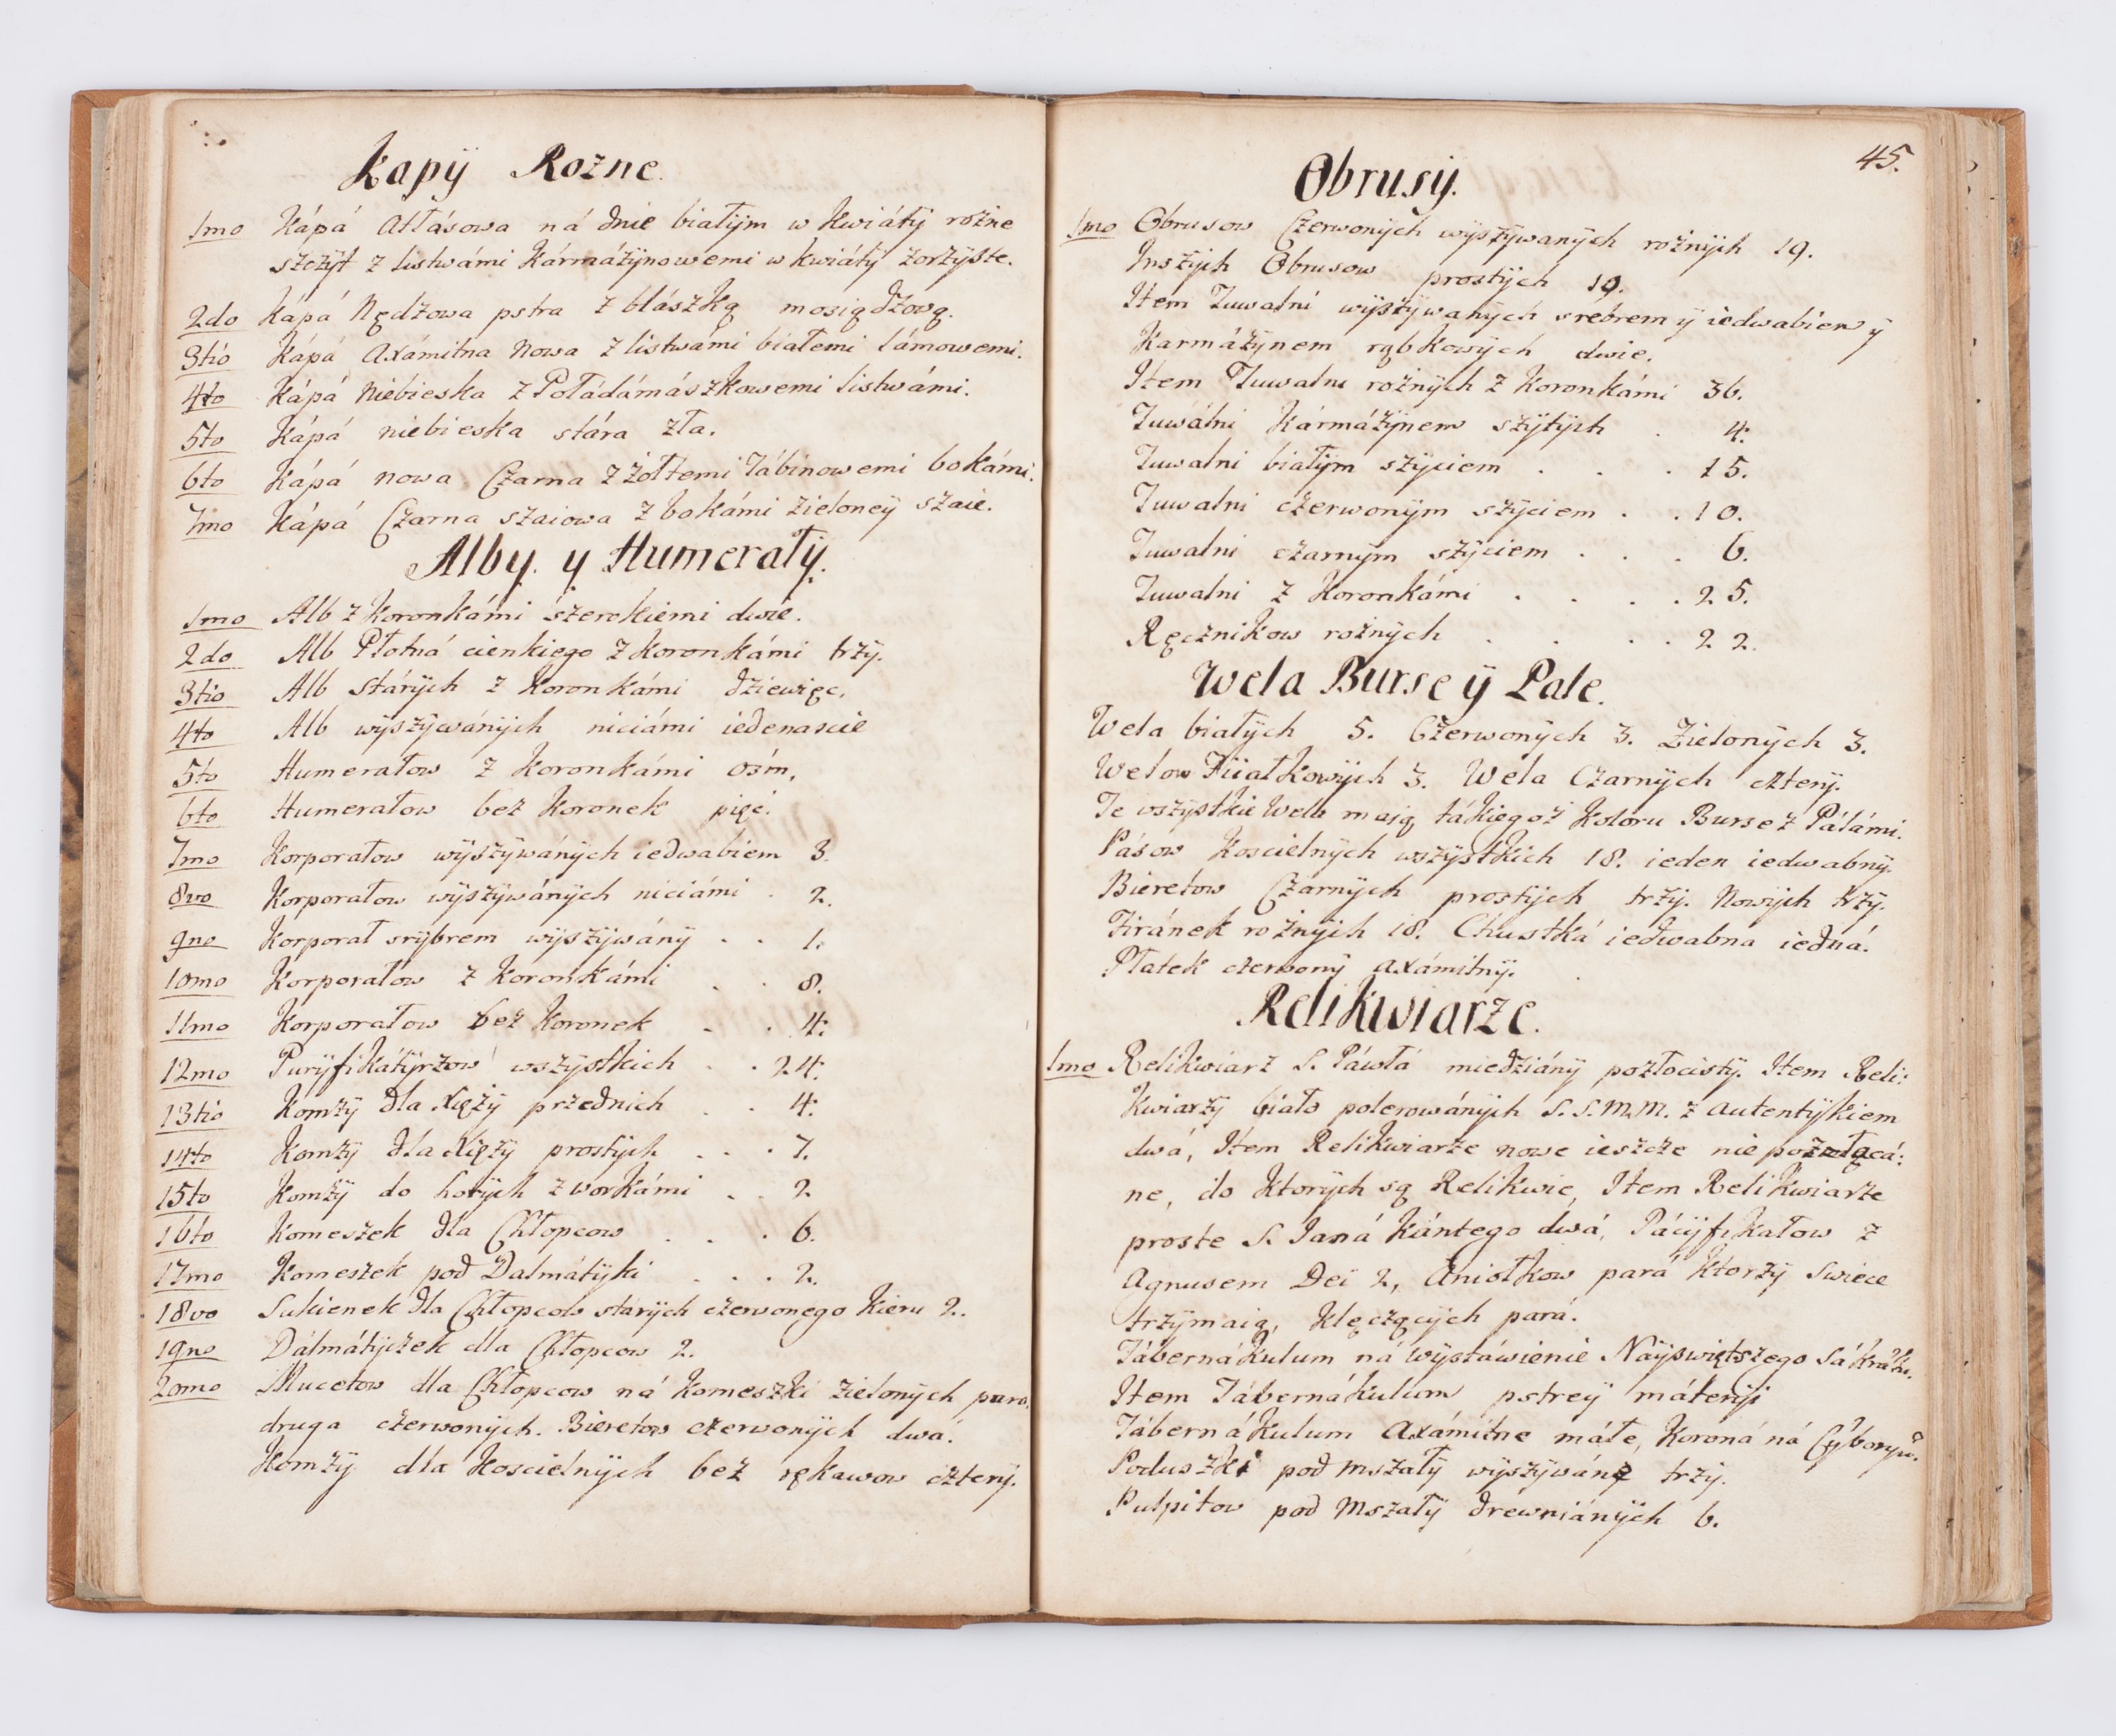 Kapÿ Rozne.
1mo Kápá Atłásowa ná dnie białÿm w Kwiátÿ rożne
szczÿt z listwámi Kármázÿnowemi w kwiátÿ żorżÿste.
2do Kápá Nędzowa pstra z blászką mosiądzową.
3tio Kápá Axámitna Nowa z listwámi białemi lámowemi.
4to Kápá Niebieska z Połádámászkowemi listwámi.
5to Kápá niebieska stára zła.
6to Kápá nowa Czarna z żołtemi Tábinowemi bokámi.
7mo Kápá Czarna szaiowa z bokámi zieloneÿ szaie.
Alby. y Humerałÿ.
1mo Alb z Koronkámi szerokiemi dwie.
2do Alb Płotná cienkiego z Koronkámi trzÿ.
3tio Alb stárÿch z Koronkámi dziewięc.
4to Alb wÿszÿwánÿch niciámi iedenascie
5to Humerałow z Koronkámi osm.
6to Humerałow bez Koronek pięć.
7mo Korporałow wÿszÿwánÿch iedwabiem 3.
8vo Korporałow wÿszÿwánÿch niciámi . 2.
9no Korporał srÿbrem wÿszÿwánÿ . . 1.
10mo Korporałow z Koronkámi . . 8.
11mo Korporałow bez Koronek . . 4.
12mo Purÿfikátÿrzow wszÿstkich . . 24.
13tio Komżÿ dla Xięzÿ przednich . . 4.
14to Komżÿ dla Xięzÿ prostÿch . . . 7.
15to Komżÿ do horÿch z workámi . . 2.
16to Komeszek dla Chłopcow . . . 6.
17mo Komeszek pod Dalmátÿki . . . 2.
18vo Sukienek dla Chłopcow stárÿch czerwonego Kieru 2.
19no Dálmátÿczek dla Chłopcow 2.
20mo Mucetow dla Chłopcow ná Komeszki zielonÿch para,
druga czerwonÿch. Bieretow czerwonÿch dwá.
Komżÿ dla Koscielnÿch bez rękawow czterÿ.
45.
Obrusÿ.
1mo Obrusow Czerwonÿch wÿszÿwanÿch rożnÿch 19.
Inszÿch Obrusow prostÿch 19.
Item Tuwalni wÿszÿwanÿch srebrem ÿ iedwabiem ÿ
Karmázÿnem rąbkowÿch dwie.
Item Tuwalni rożnÿch z Koronkámi 36.
Tuwálni Kármázÿnem szÿtÿch . 4.
Tuwalni białÿm szÿciem . . . 15.
Tuwalni czerwonÿm szÿciem . . 10.
Tuwalni czarnÿm szÿciem . . . 6.
Tuwalni z Koronkámi . . . . 25.
Ręcznikow rożnÿch . . . . 22.
Wela Burse ÿ Pale.
Wela białÿch 5. Czerwonÿch 3. Zielonÿch 3.
Welow Fiiałkowÿch 3. Wela Czarnÿch czterÿ.
Te wszÿstkie Wela maią tákiegoż Koloru Burse z Pálámi.
Pásow Koscielnÿch wszÿstkich 18. ieden iedwabnÿ.
Bieretow Czarnÿch prostÿch trzÿ. Nowÿch trzÿ.
Firánek rożnÿch 18. Chustká iedwabna iedná.
Płatek czerwonÿ axámitnÿ.
Relikwiarze.
1mo Relikwiarz S. Páwłá miedziánÿ pozłocistÿ. Item Reli:
Kwiarzÿ biało polerowánÿch S.S.M.M. z autentÿkiem
dwá, Item Relikwiarze nowe ieszcze nie pozołącá:
ne, do Ktorÿch są Relikwie, Item Relikwiarze
proste S. Janá Kántego dwá, Pácÿfikałow z
Agnusem Dei 2, Aniołkow pará Ktorzÿ Swiece
trzÿmaią, klęczącÿch pará.
Tábernákulum ná wÿstáwienie Naÿswiętszego Sákrátu.
Item Tábernákulum pstreÿ máterÿi
Tábernákulum Axámitne máłe, Koroná ná Cÿboryū.
Poduszki pod Mszałÿ wÿszÿváne trzÿ.
Pulpitow pod Mszałÿ drewniánÿch 6.